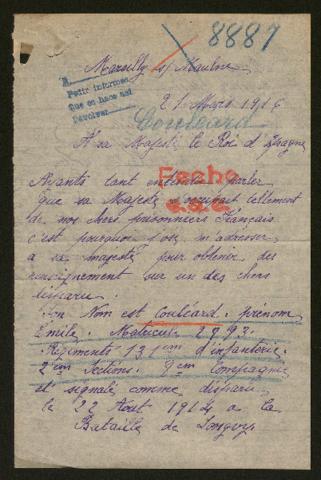 8887
Marcilly s/ Maulne
A
Pedir informes
que se hace así
Devolver
21 Mars 1916
Couléard
A sa Majesté le Roi d'Espagne
Fecho
Ayants tant entendu parler
que sa Majesté s'occupait tellement
de nos chers prisonniers Français
c'est pourquoi j'ose m'adresser
a sa majesté pour obtenir des
renseignement sur un des chers
disparu.
Son Nom est Couléard. prénom
Emile. Matricule 2793.
Régiments 131em d'infanterie.
2em Sections. 9em Compagnie
et signalé comme disparu
le 22 Aout 1914 a la
Bataille de Longwy.